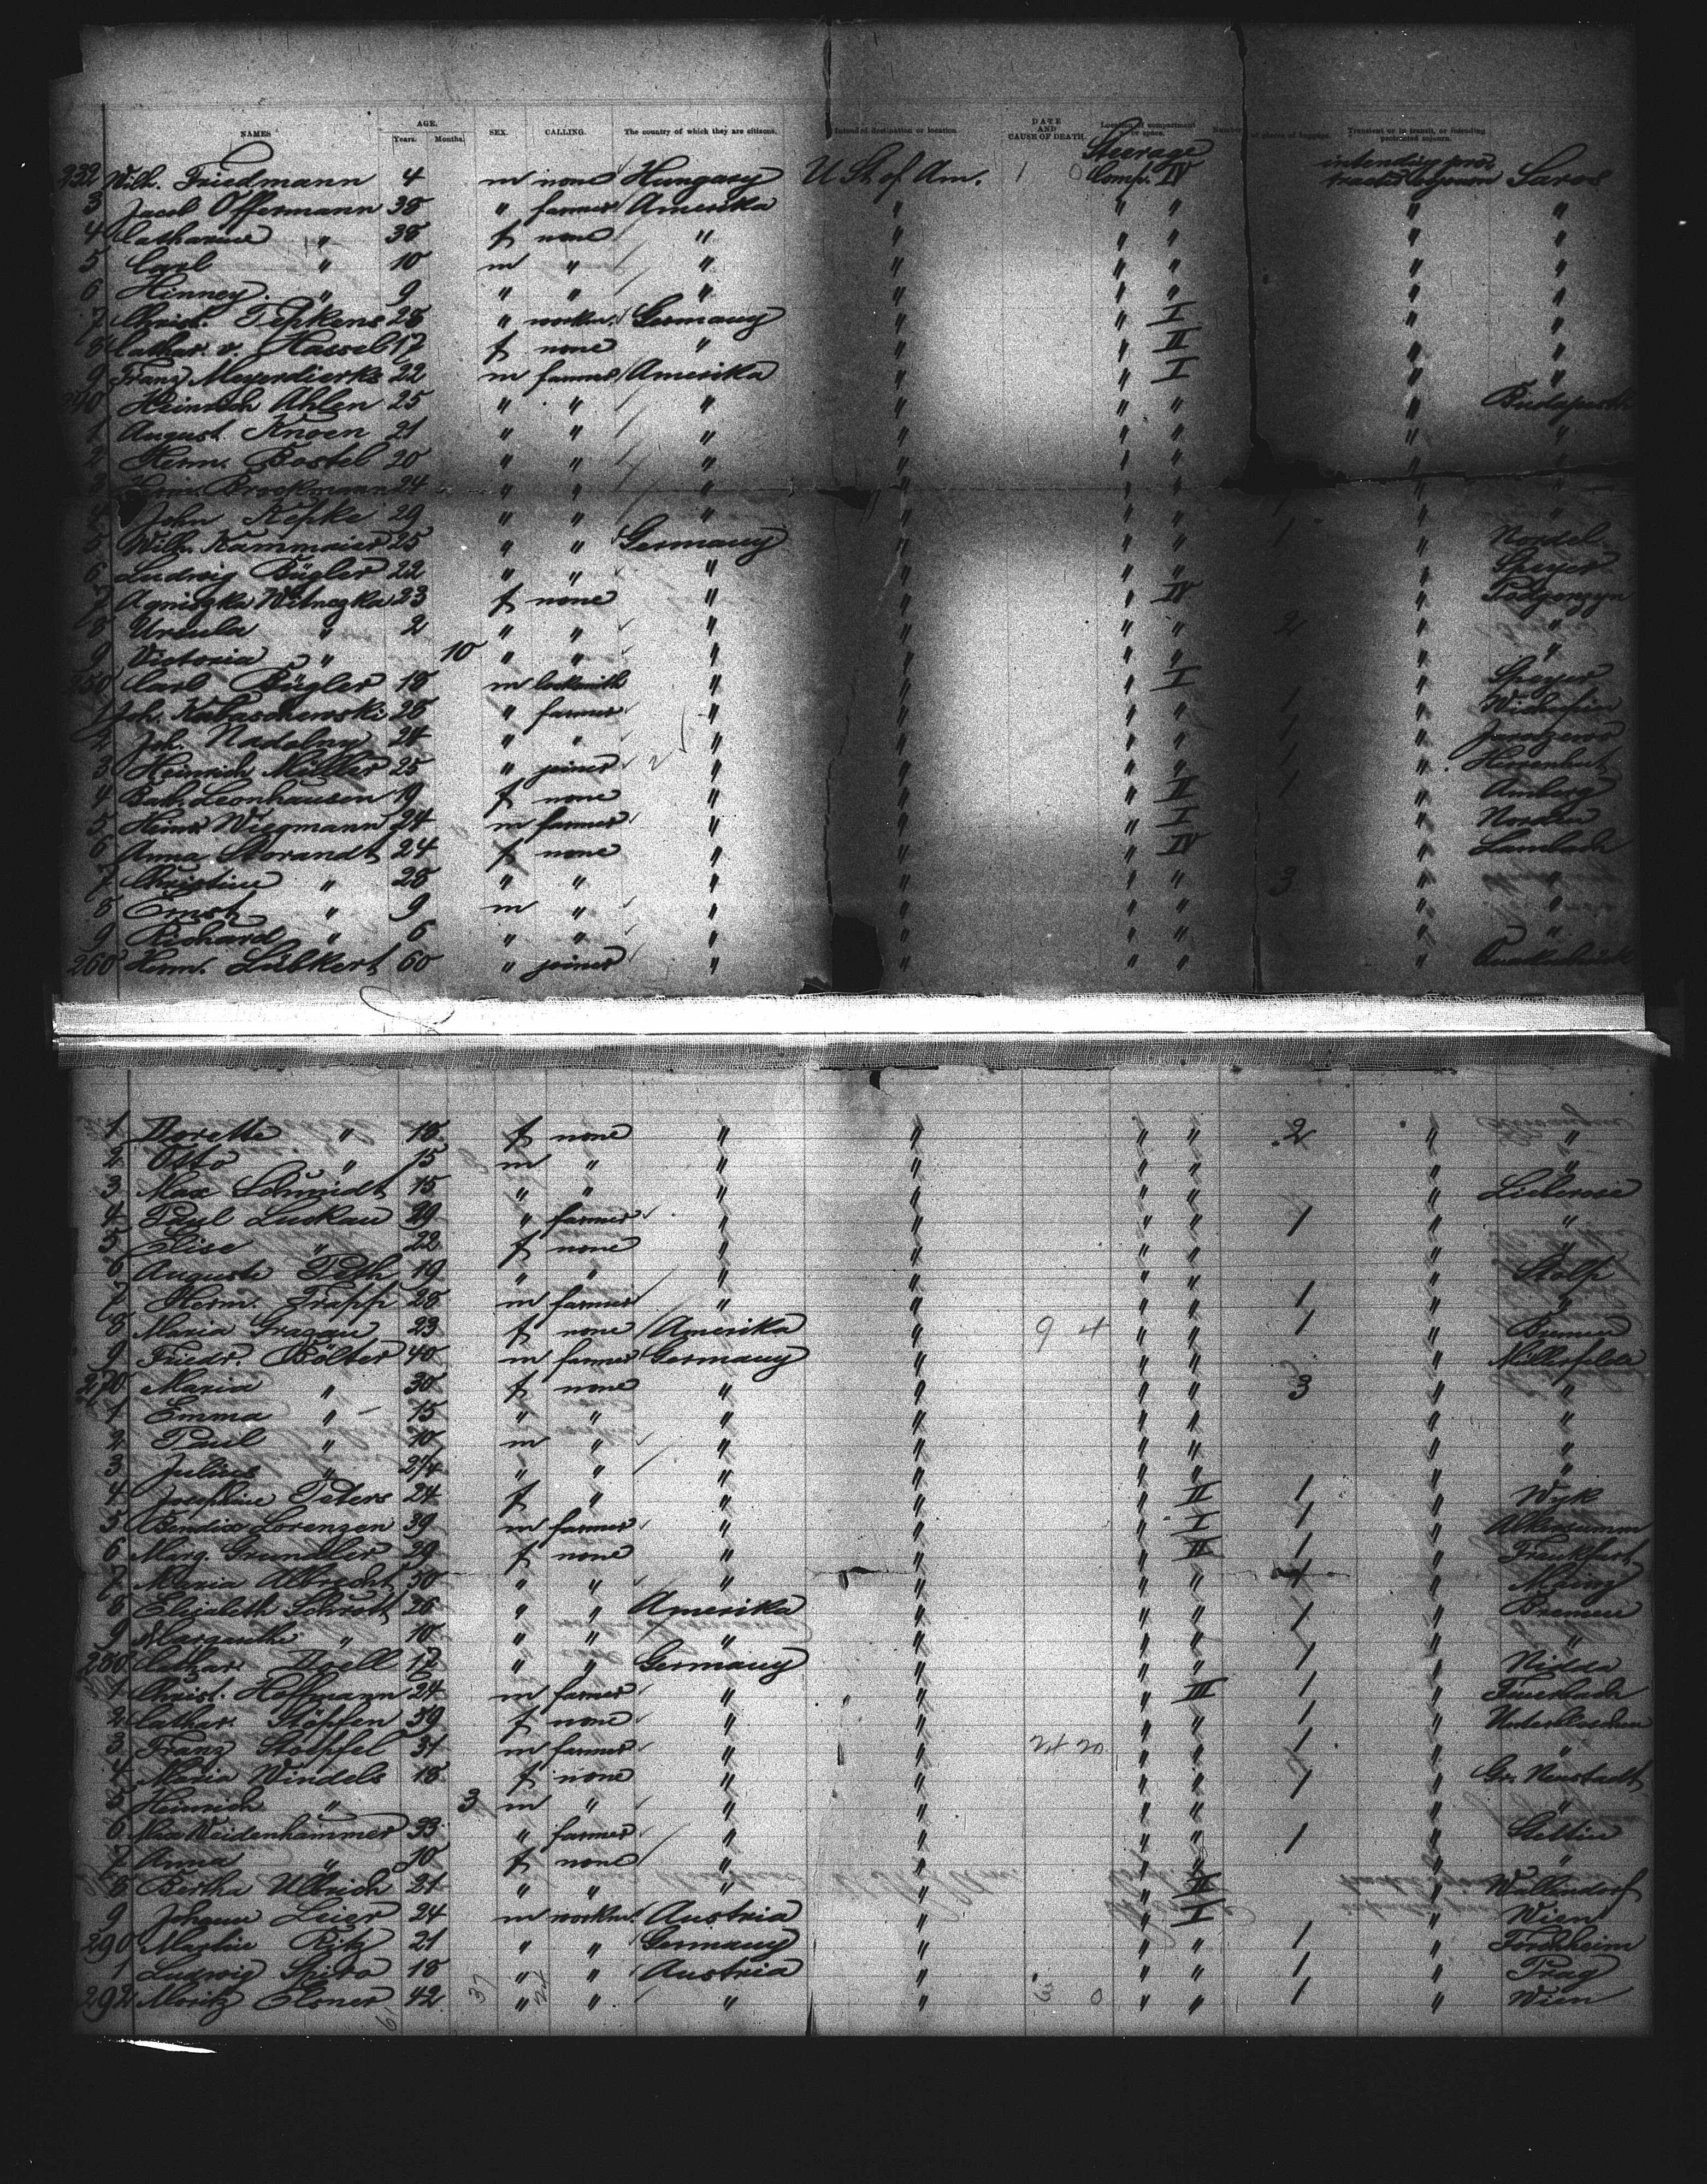 NAMES AGE. Years. Months. SEX. CALLING. The country of which they are citizens. Intended destination or location DATE AND CAUSE OF DEATH. Location of compartment or space. Number of pieces of baggage. Transient or in transit, or intending protracted sojourn.
Steerage intending pro-
232 Wilh. Friedmann 4 m none Hungary U St. of Am. 1 0 Comp. IV tracted sojourn Saros
3 Jacob Offermann 38 " farmer Amerika " " " " "
4 Catharine " 38 f none " " " " " "
5 Carl " 10 m " " " " " " "
6 Hinney " 9 " " " " " " " "
7 Christ. Tepkens 28 " workm. Germany " " I " "
8 Cathar. v. Hassel 17 f none " " " II " "
9 Franz Meyerdierks 22 m farmer Amerika " " I " "
240 Heinrich Ahlen 25 " " " " " " " Budapesth
1 August Knoen 21 " " " " " " " "
2 Herm. Bostel 20 " " " " " " "
3 Brockmann 24 " " " " " " "
4 John Kepke 29 " " " " " " 1 " "
5 Wilh. Kammaier 25 " " Germany " " " 1 " Nordel
6 Ludwig Bügler 22 " " " " " " " Speyer
7 Agniszka Witnezka 23 f none " " " IV "
8 Ursula " 2 " " " " " " 2 " "
9 Victoria " 10 " " " " " " " "
250 Carl Bügler 18 m locksmith " " " I " Speyer
1 Joh. Kubaschewski 28 " farmer " " " " 1 "
2 Joh. Nadolny 24 " " " " " " 1 "
3 Heinrich Müller 25 " joiner " " " " 1 "
4 Bath. Leonhausen 19 f none " " " II 1 " Amberg
5 Heinr. Wiegmann 24 m farmer " " " I " Norden
6 Anna Storandt 24 f none " " " IV "
7 Christine " 28 " " " " " " 3 " "
8 Ernst " 9 m " " " " " " "
9 Richard " 6 " " " " " " " "
260 Herm. Lübkert 60 " joiner " " " " " Quakenbrück
1 Dorette " 18 f none " " " " 2 " "
2 Otto " 15 m " " " " " " "
3 Max Schmidt 15 " " " " " " " Lieberose
4 Paul Luckau 29 " farmer " " " " 1 " "
5 Elise " 22 f none " " " " " "
6 Auguste 19 " " " " " " " Stolp
7 Herm. Trapp 28 m farmer " " " " 1 " "
8 Maria Gragau 23 f none Amerika " 9 4 " " 1 " Bremen
9 Friedr. Bölter 40 m farmer Germany " " " " Müllerfelde
270 Maria " 30 f none " " " " 3 " "
1 Emma " 15 " " " " " " " "
2 Paul " 10 m " " " " " " "
3 Julius " " " " " " " " "
4 Josephine Peters 24 f " " " " II 1 " Wyk
5 Bendix Lorenzen 39 m farmer " " " I 1 "
6 Marg. Grundler 39 f none " " " II 1 " Frankfurt
7 Maria Albrecht 50 " " " " " " 1 "
8 Elizabeth Schrott 26 " " Amerika " " " 1 " Bremen
9 Margarethe " 10 " " " " " " " "
280 Cathar. Doell 17 " " Germany " " " 1 " Nidda
1 Christ. Hoffmann 24 m farmer " " " III 1 " Feuerbach
2 Cathar. Stöpfen 39 f none " " " " 1 "
3 Franz Stoepfel 31 m farmer " " 24 20 " " 1 " "
4 Maria Windels 18 f none " " " " 1 " Gr. Neustadt
5 Heinrich " 3 m " " " " " " "
6 Max Weidenhammer 33 " farmer " " " " 1 " Stettin
7 Anna " 10 f none " " " " " "
8 Bertha Ullrich 21 " " " " " II " Wallendorf
9 Johann Leier 24 m workm. Austria " " I " Wien
290 Martin Ritz 21 " " Germany " " " 1 " Forchheim
1 Ludwig Spira 18 " " Austria " " " 1 " Prag
292 Moritz Elsner 42 " " " " 0 " " 1 " Wien